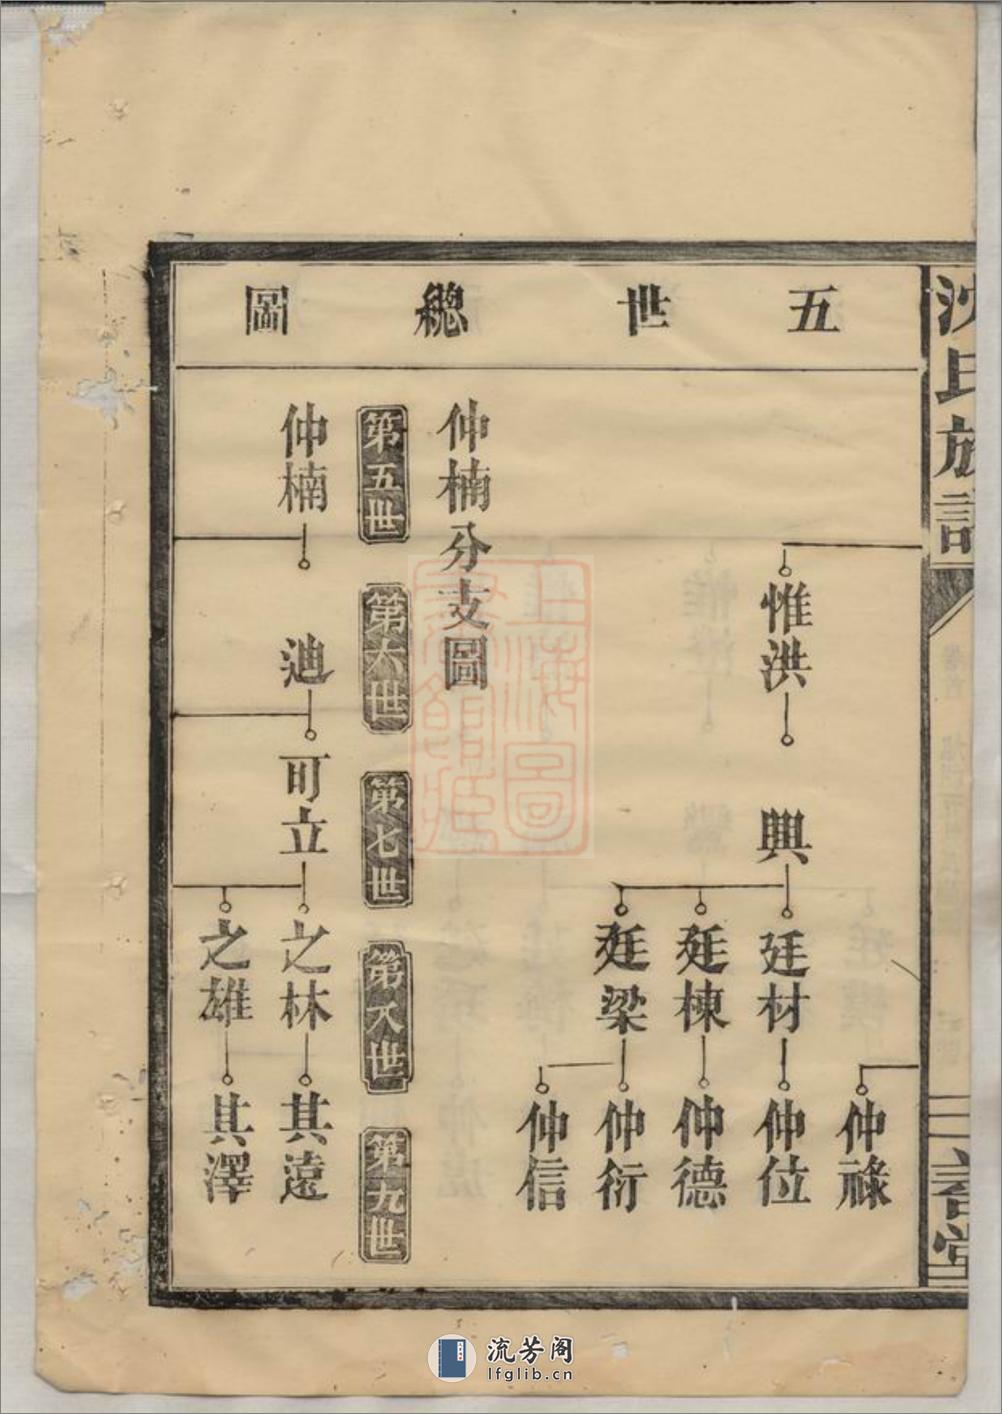 沈氏族譜
五世總圖
惟洪
興
廷材
廷棟
廷梁
仲祿
仲位
仲德
仲衍
仲信
仲楠分支圖
第五世
第六世
第七世
第八世
第九世
仲楠
迪
可立
之林
之雄
其遠
其澤
流芳阁
lfglib.cn